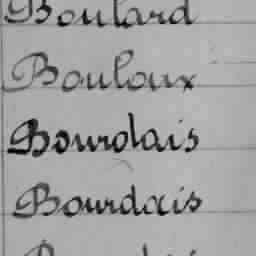 Boulard
Bouloux
Bourdais
Bourdais